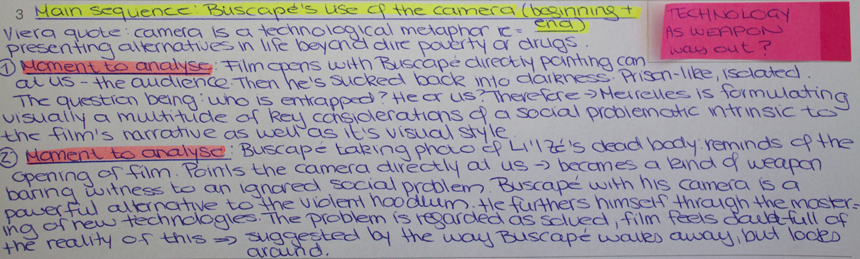 3 Main sequence: Buscapé's use of the camera (beginning +
end)
Viera quote: camera is a technological metaphor ie =
presenting alternatives in life beyond dire poverty or drugs.
TECHNOLOGY
AS WEAPON
way out?
① Moment to analyse: Film opens with Buscapé directly pointing cam
at us - the audience. Then he's sucked back into darkness. Prison-like, isolated.
The question being: who is entrapped? He or us? Therefore → Meirelles is formulating
visually a multitude of key considerations of a social problematic intrinsic to
the film's narrative as well as it's visual style.
② Moment to analyse: Buscapé taking photo of Li'l Zé's dead body: reminds of the
opening of film. Points the camera directly at us → becomes a kind of weapon
baring witness to an ignored social problem. Buscapé with his camera is a
powerful alternative to the violent hoodlum. He furthers himself through the master-
ing of new technologies. The problem is regarded as solved, film feels doubt-full of
the reality of this ⇒ suggested by the way Buscapé walks away, but looks
around.